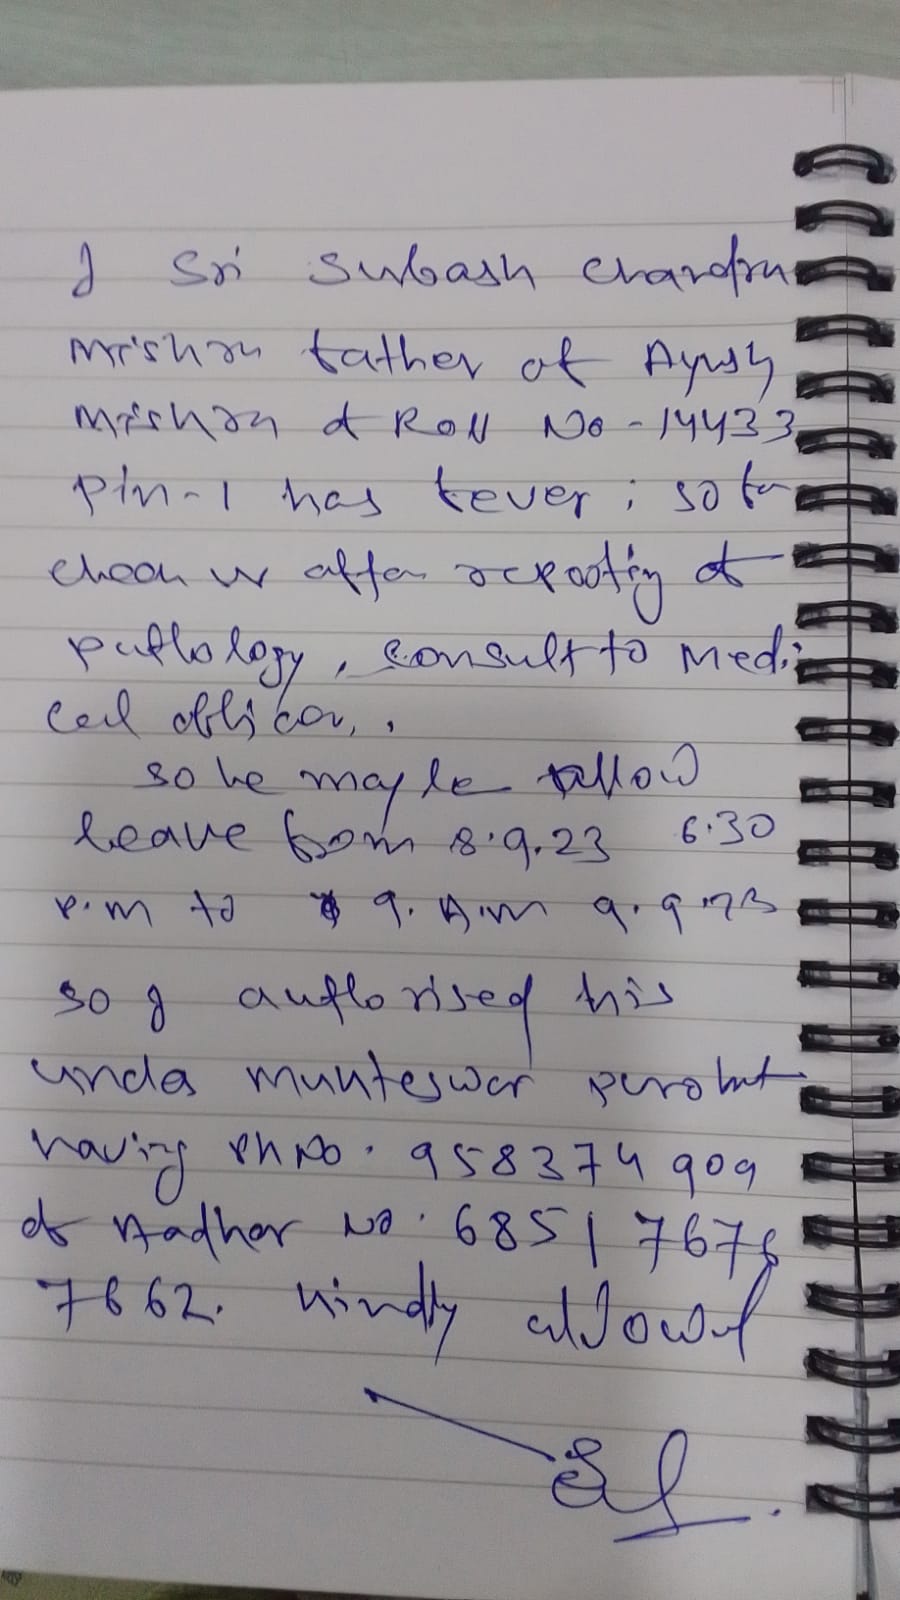 I Sri Subash Chandra
Mishra father of Ayush
Mishra of Roll No - 14433
Pin-1 has fever; so for
check up after reporting of
pathology, consult to Medi
cal
so he may be allow
leave from 8.9.23 6.30
P.m to 9. A.m 9.9.23
so I authorised his
uncle Munteswar Purohit
having Ph No. 958374909
& Aadhar No. 6851 7676
7662. Kindly allowed